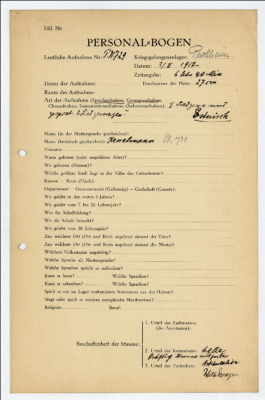 Lfd. Nr
PERSONAL-BOGEN
Lautliche Aufnahme Nr: PK 729 Kriegsgefangenenlager: Parchim
Datum: 2/II 1917
Zeitangabe: 6 Uhr 40 Min
Dauer der Aufnahme: Durchmesser der Platte: 27 cm
Raum der Aufnahme:
Art der Aufnahme (Sprechaufnahme, Gesangsaufnahme,
Choraufnahme, Instrumentalaufnahme, Orchesteraufnahme): 
Estnisch
Name (in der Muttersprache geschrieben):
Name (lateinisch geschrieben):
Vorname:
Wann geboren (oder ungefähres Alter)?
Wo geboren (Heimat)?
Welche größere Stadt liegt in der Nähe des Geburtsortes?
Kanton — Kreis (Ujedz):
Departement — Gouvernement (Gubernija) — Grafschaft (County):
Wo gelebt in den ersten 6 Jahren?
Wo gelebt vom 7. bis 20. Lebensjahr?
Was für Schulbildung?
Wo die Schule besucht?
Wo gelebt vom 20. Lebensjahr?
Aus welchem Ort (Ort und Kreis angeben) stammt der Vater?
Aus welchem Ort (Ort und Kreis angeben) stammt die Mutter?
Welchem Volksstamm angehörig?
Welche Sprache als Muttersprache?
Welche Sprachen spricht er außerdem?
Kann er lesen? Welche Sprachen?
Kann er schreiben? Welche Sprachen?
Spielt er ein im Lager vorhandenes Instrument aus der Heimat?
Singt oder spielt er modern europäische Musikweisen?
Religion: Beruf:
Beschaffenheit der Stimme:
1. Urteil des Fachmannes
(des Assistenten):
2. Urteil des Kommissars:
3. Urteil des Technikers: